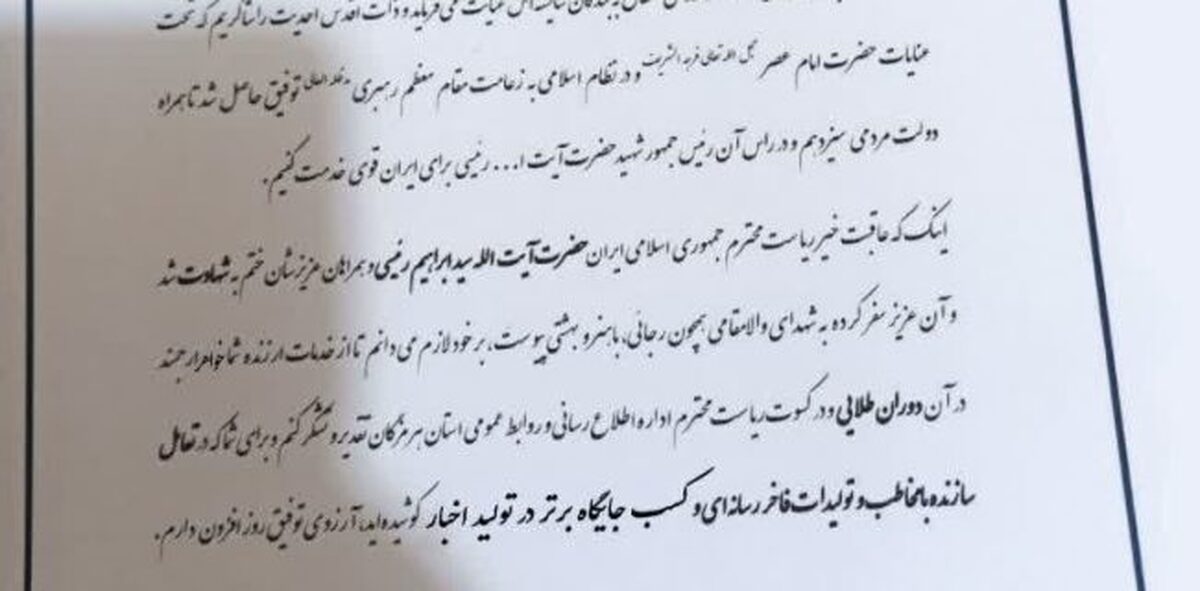 به بندگان شایسته اش عنایت می فرماید و ذات اقدس احدیت را شاکریم که تحت
عنایات حضرت امام عصر عجل الله تعالی فرجه الشریف و در نظام اسلامی به زعامت مقام معظم رهبری مدظله العالی توفیق حاصل شد تا همراه
دولت مردمی سیزدهم و در راس آن رئیس جمهور شهید حضرت آیت ا... رئیسی برای ایران قوی خدمت کنیم.
اینک که عاقبت خیر ریاست محترم جمهوری اسلامی ایران حضرت آیت الله سید ابراهیم رئیسی و همراهان عزیزشان ختم به شهادت شد
و آن عزیز سفر کرده به شهدای والامقامی همچون رجائی، باهنر و بهشتی پیوست، بر خود لازم می دانم تا از خدمات ارزنده شما خواهر ارجمند
در آن دوران طلایی و در کسوت ریاست محترم اداره اطلاع رسانی و روابط عمومی استان هرمزگان تقدیر و تشکر کنم و برای شما که در تعامل
سازنده با مخاطب و تولیدات فاخر رسانه ای و کسب جایگاه برتر در تولید اخبار کوشیده اید، آرزوی توفیق روز افزون دارم.